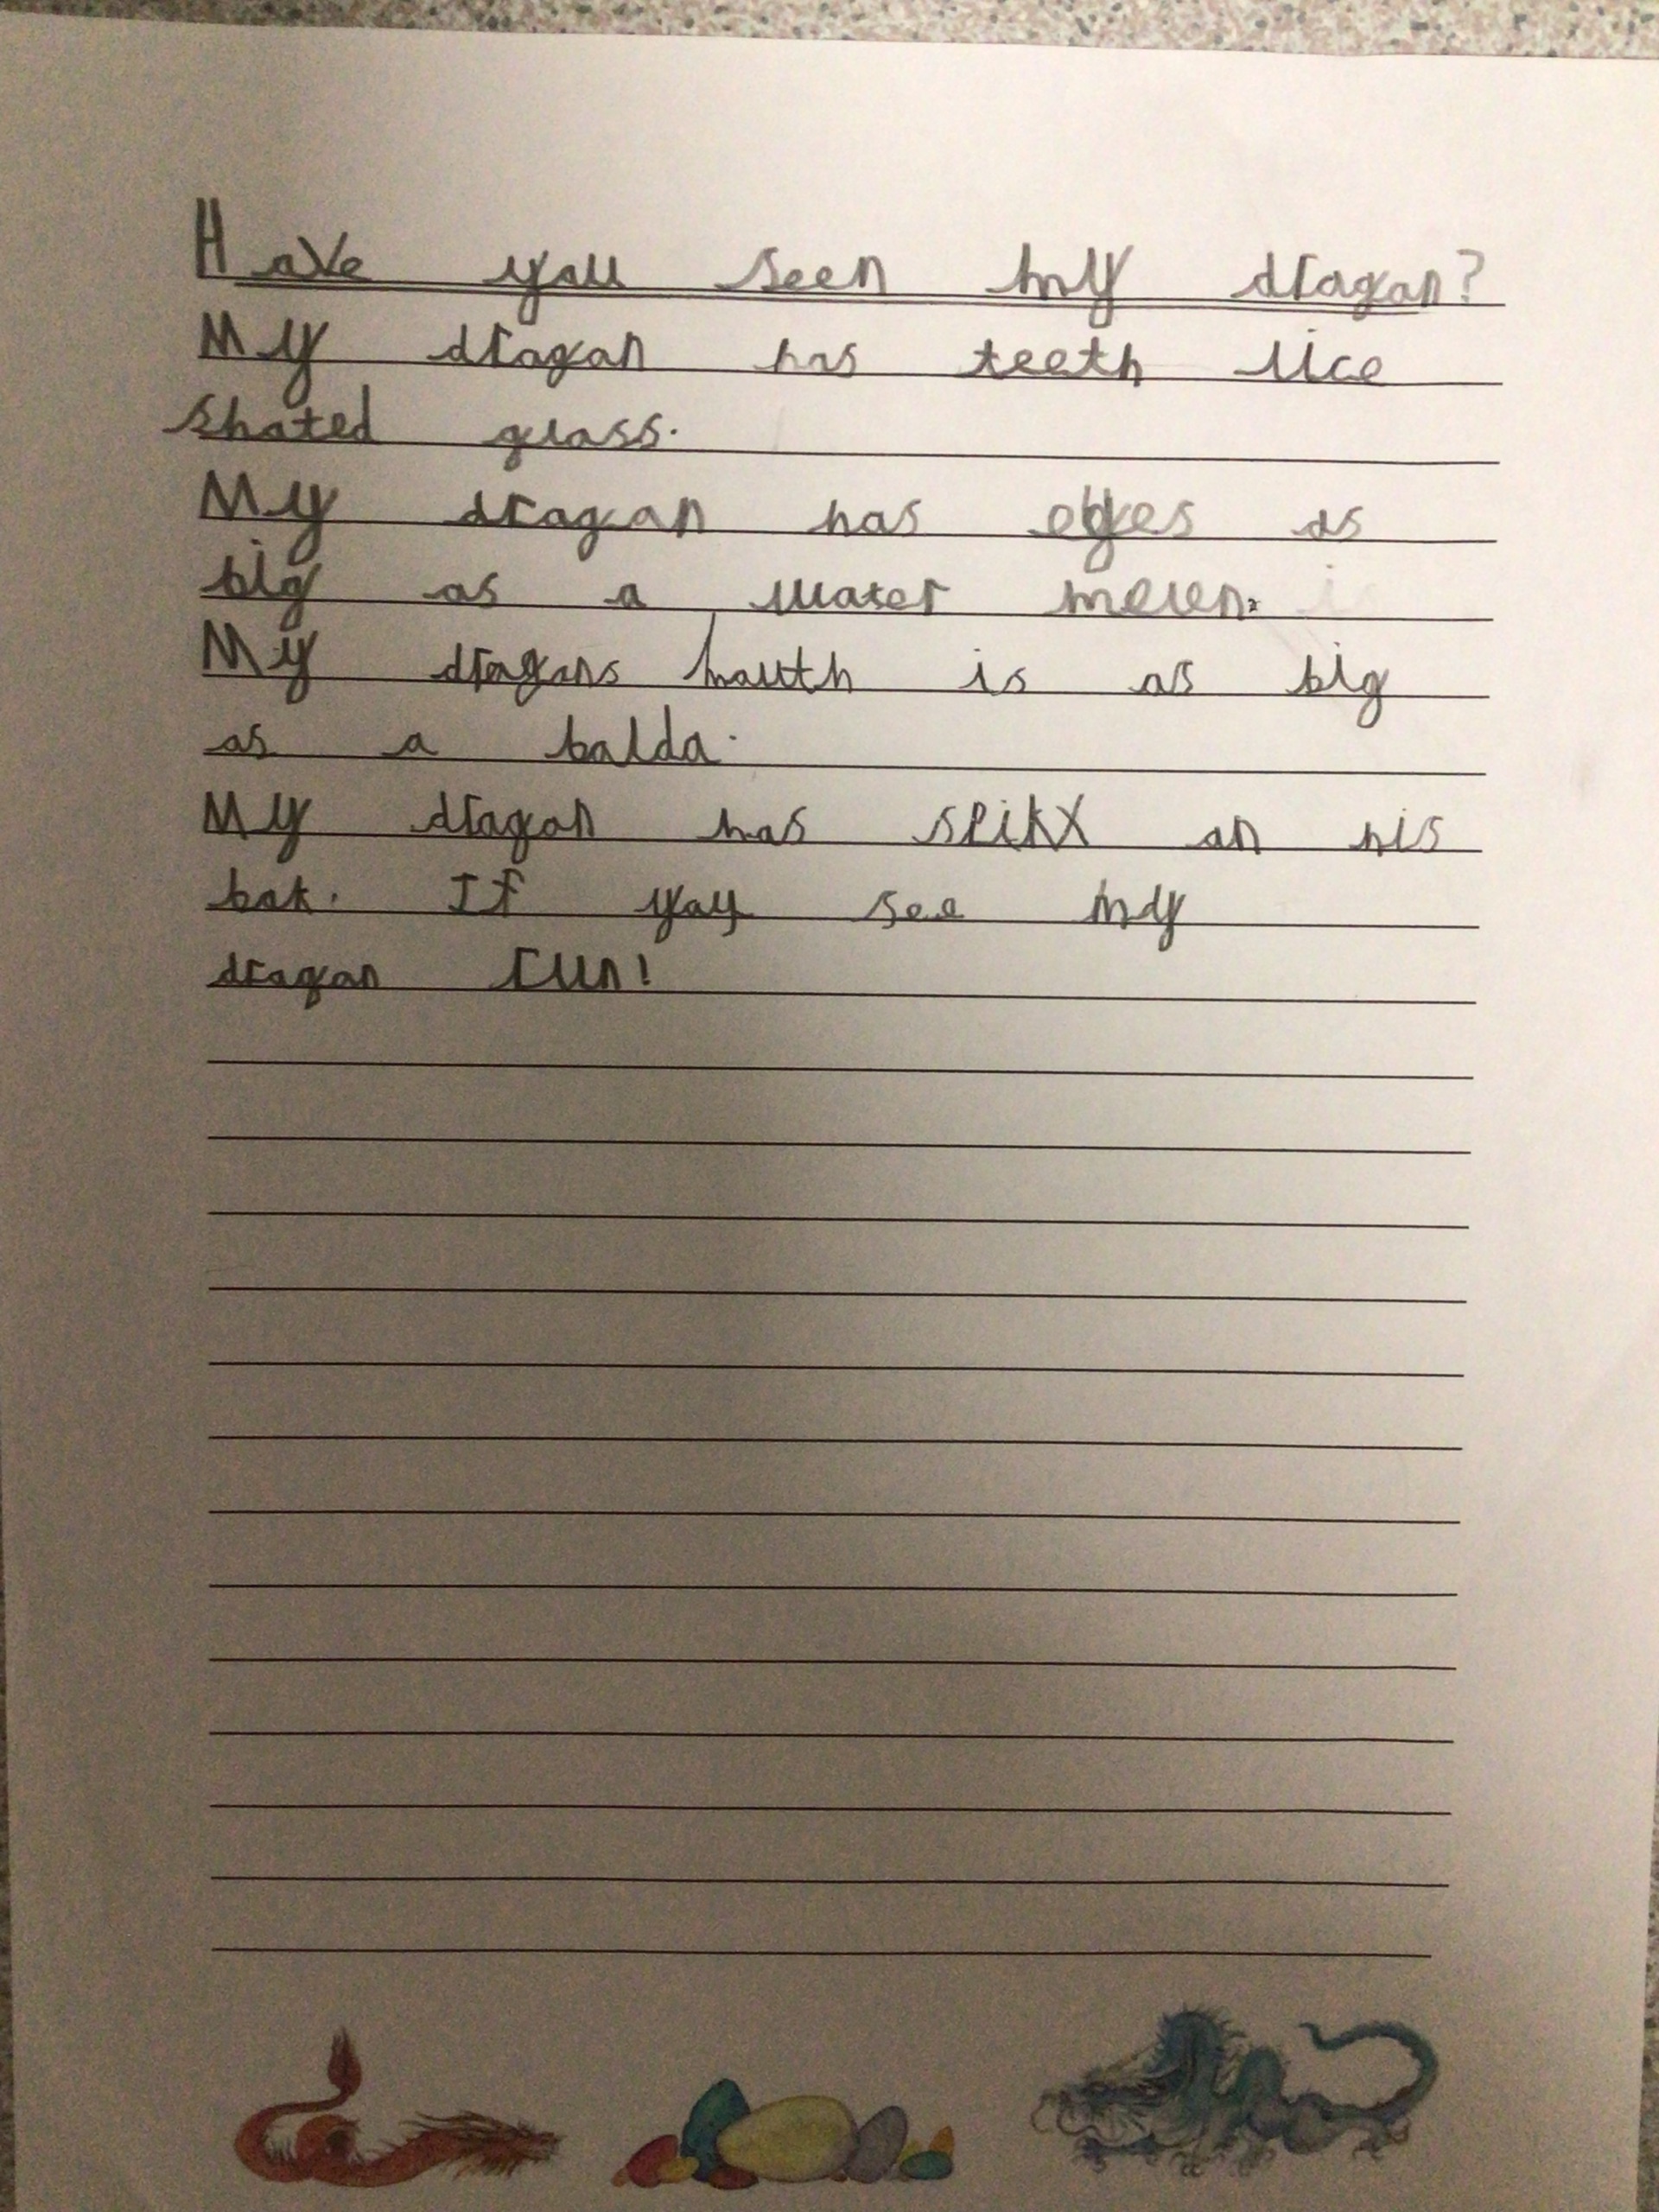 Have you seen my dragon?
My dragon has teeth lice
shated glass.
My dragon has eyes as
big as a water melen.
My dragons mouth is as big
as a balda.
My dragon has spikx on his
bak. If you see my
dragon run!